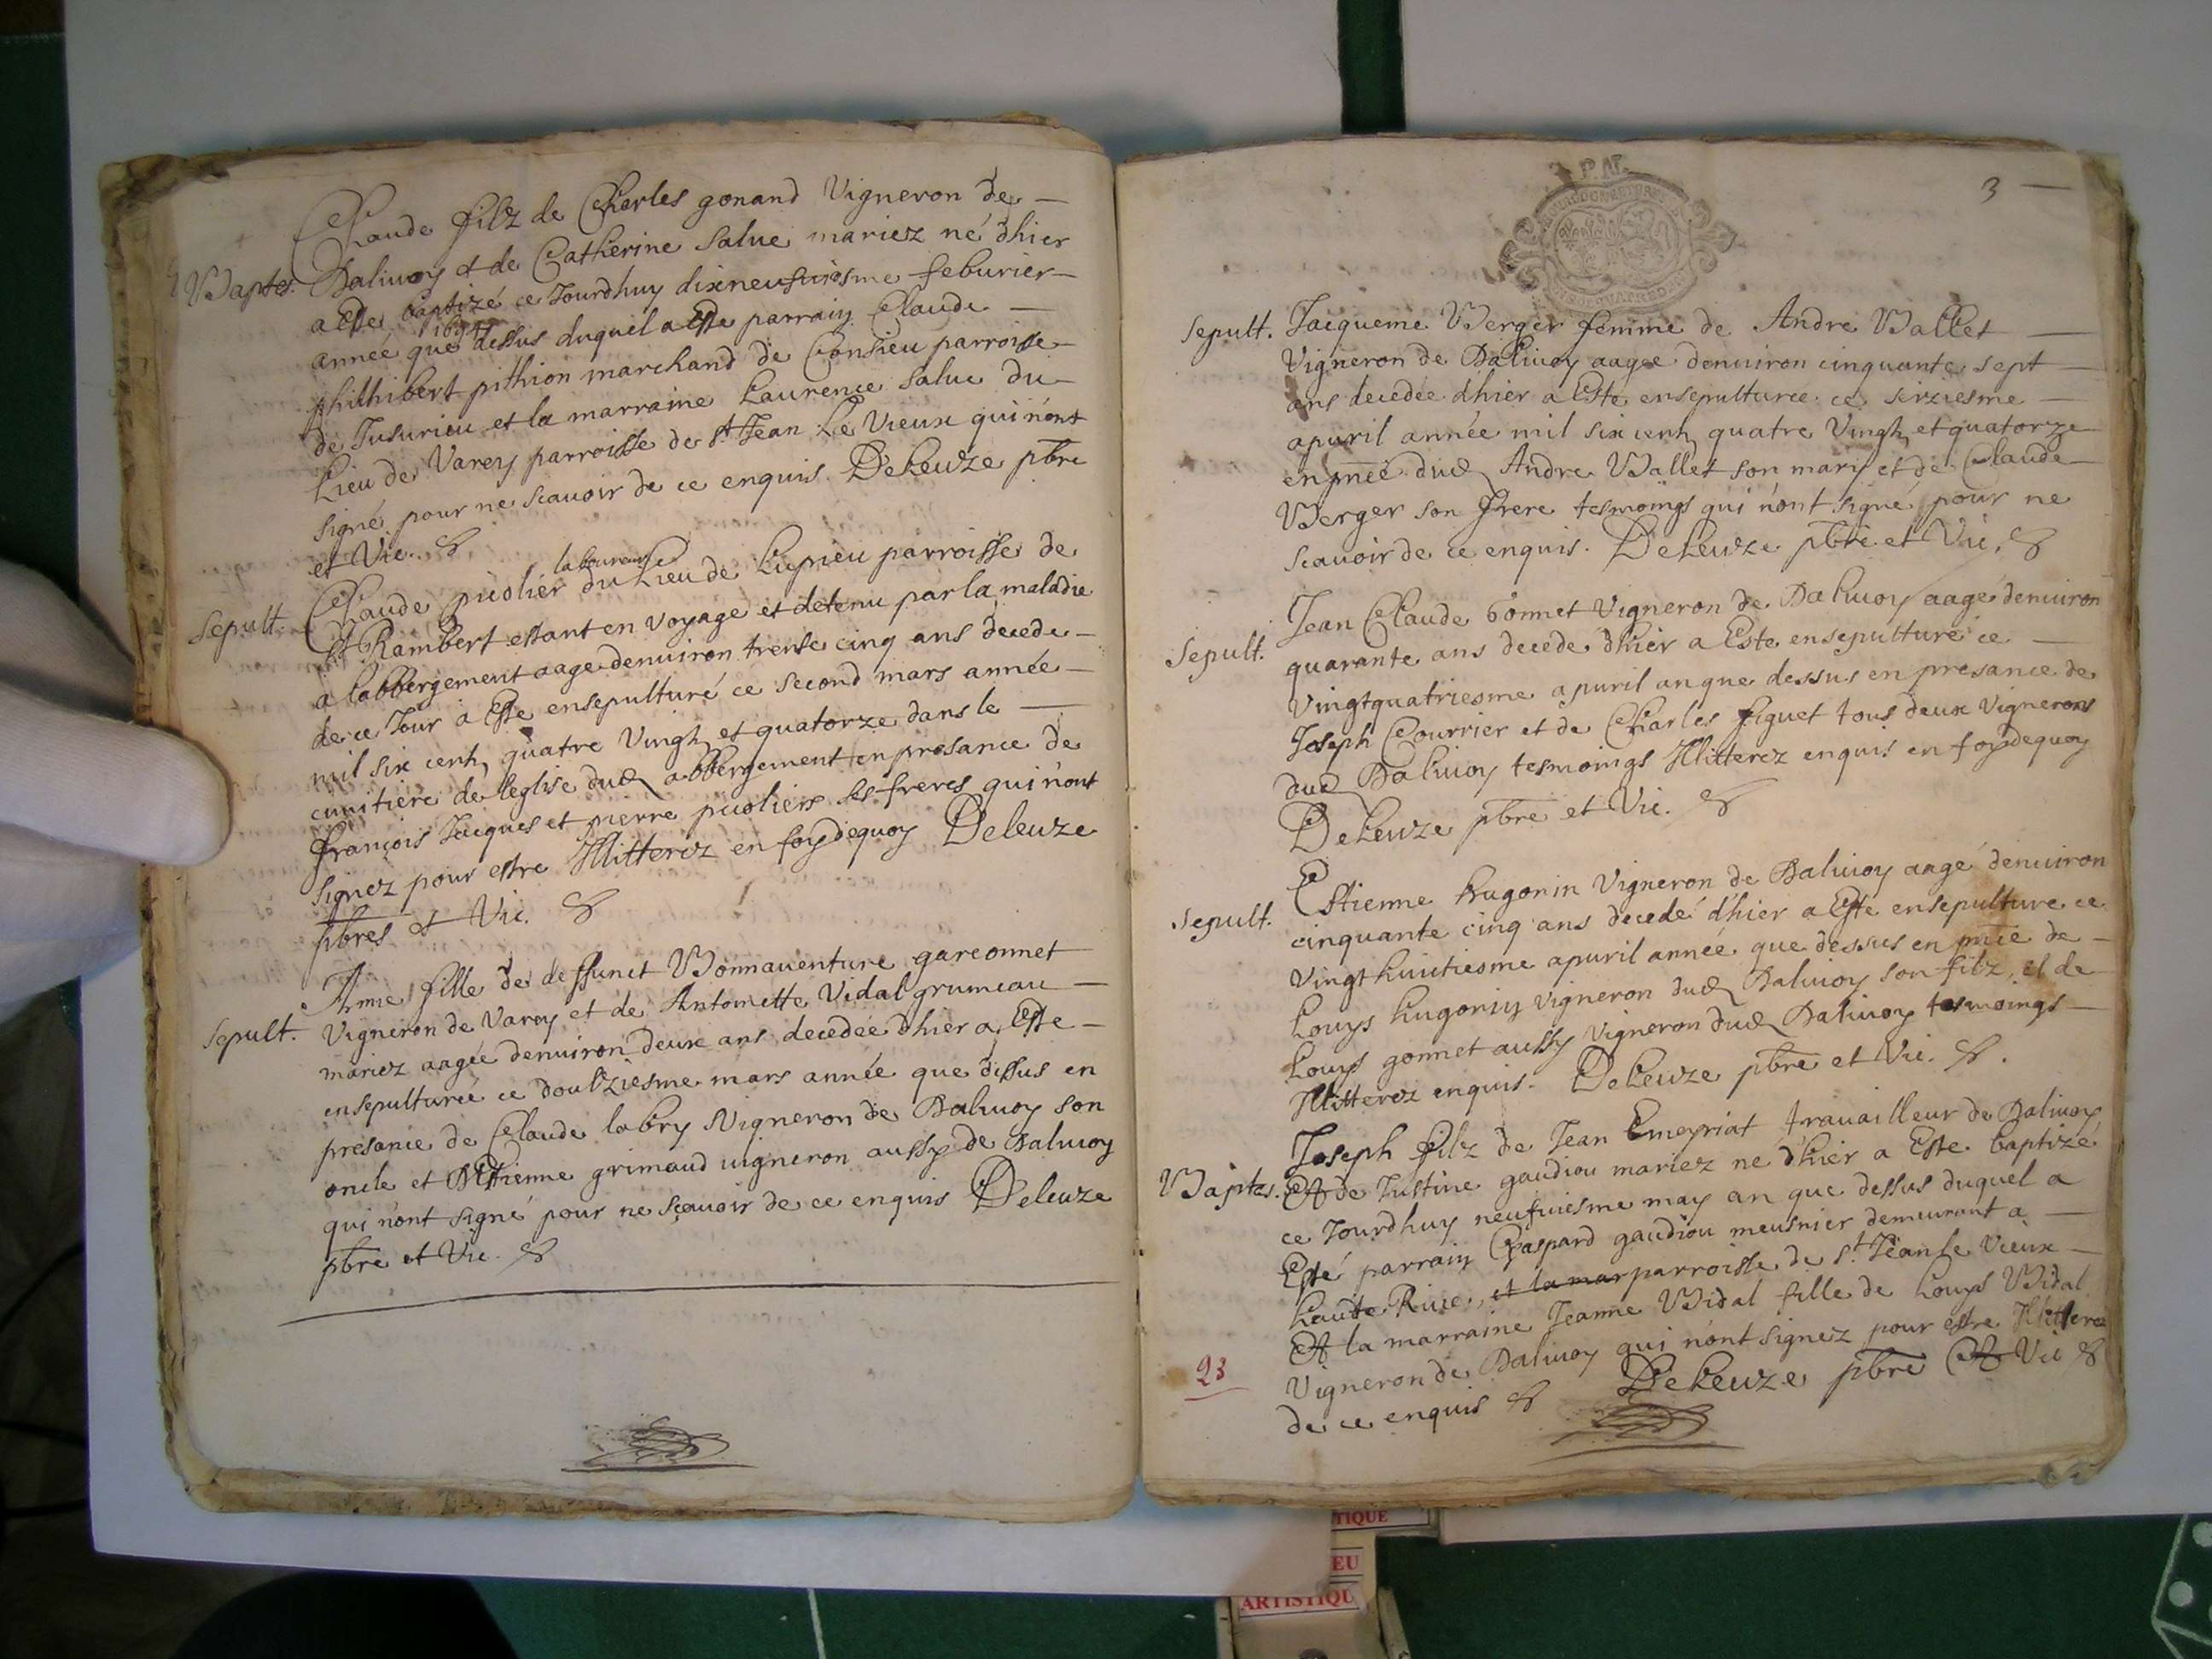 Claude filz de Charles gonand Vigneron de
Dalivoy et de Catherine Salue mariez né dhier
Baptes.
a Este baptizé ce Jourdhuy dixneufuiesme feburier
1694
année que dessus duquel a Este parrain Claude
philibert pithion marchand de Consieu parroisse
de Jusurieu et la marraine Laurence Salue du
Lieu de Varey parroisse de st Jean Le Vieux qui n'ont
signé pour ne scauoir de ce enquis. Deleuze pbre
et Vic. &
laboureur
Claude picolier du Lieu de Lupieu parroisse de
Sepult.
St Rambert estant en voyage et detenu par la maladie
a labbergement aage denuiron trente cinq ans decede
de ce Jour a Este ensepulturé ce second mars année
mil six centz quatre Vingtz et quatorze dans le
cimitiere de leglise dud abbergement en presance de
françois Jacques et pierre picoliers ses freres qui n'ont
signez pour estre Illitterez en foy de quoy Deleuze
pbres et Vic. &
Anne fille de deffunct Bonnauenture garconnet
Sepult.
Vigneron de Varey et de Antoinette Vidal grumeau
mariez aagée denuiron deux ans decedée dhier a Este
ensepulturée ce doulziesme mars année que dessus en
presance de Claude labry Vigneron de Daliuoy son
oncle et Estienne grimaud uigneron aussy de Daliuoy
qui n'ont signé pour ne sçauoir de ce enquis Deleuze
pbre et Vic. &
3
Sepult.
Jacqueme Berger femme de Andre Ballet
Vigneron de Daliuoy aagee denuiron cinquante sept
ans decedée d'hier a Este ensepulturée ce seiziesme
apuril année mil six centz quatre Vingtz et quatorze
en pnce dud Andre Ballet son mary et de Claude
Berger son frere tesmoings qui n'ont signé pour ne
scauoir de ce enquis. Deleuze pbre et Vic. &
Jean Claude bonnet Vigneron de Daliuoy aagé denuiron
Sepult.
quarante ans decedé dhier a Este ensepulturé ce
vingtquatriesme apuril an que dessus en presance de
Joseph Courrier et de Charles figuet tous deux Vignerons
dud Daliuoy tesmoings Illitterez enquis en foy de quoy
Deleuze pbre et Vic. &
Estienne hugonin Vigneron de Daliuoy aagé denuiron
Sepult.
cinquante cinq ans decedé d'hier a Este ensepulture ce
Vingt huictiesme apuril année que dessus en pnce de
Louys hugonin vigneron dud Daliuoy son filz, et de
Louys gonnet aussy Vigneron dud Daliuoy tesmoings
Illitterez enquis. Deleuze pbre et Vic. &.
Joseph filz de Jean Emeyriat trauailleur de Daliuoy
Baptes.
Et de Justine gaudiou mariez né d'hier a Este baptizé
ce Jourdhuy neufuiesme may an que dessus duquel a
Esté parrain Gaspard gaudiou meusnier demeurant a
haute Riue, et la mar parroisse de St Jean le Vieux
Et la marraine Jeanne Vidal fille de Louys Vidal
Vigneron de Daliuoy qui n'ont signez pour estre Illitterez
93
de ce enquis & Deleuze pbre Et Vic &
TIQUE
EU
ARTISTIQU